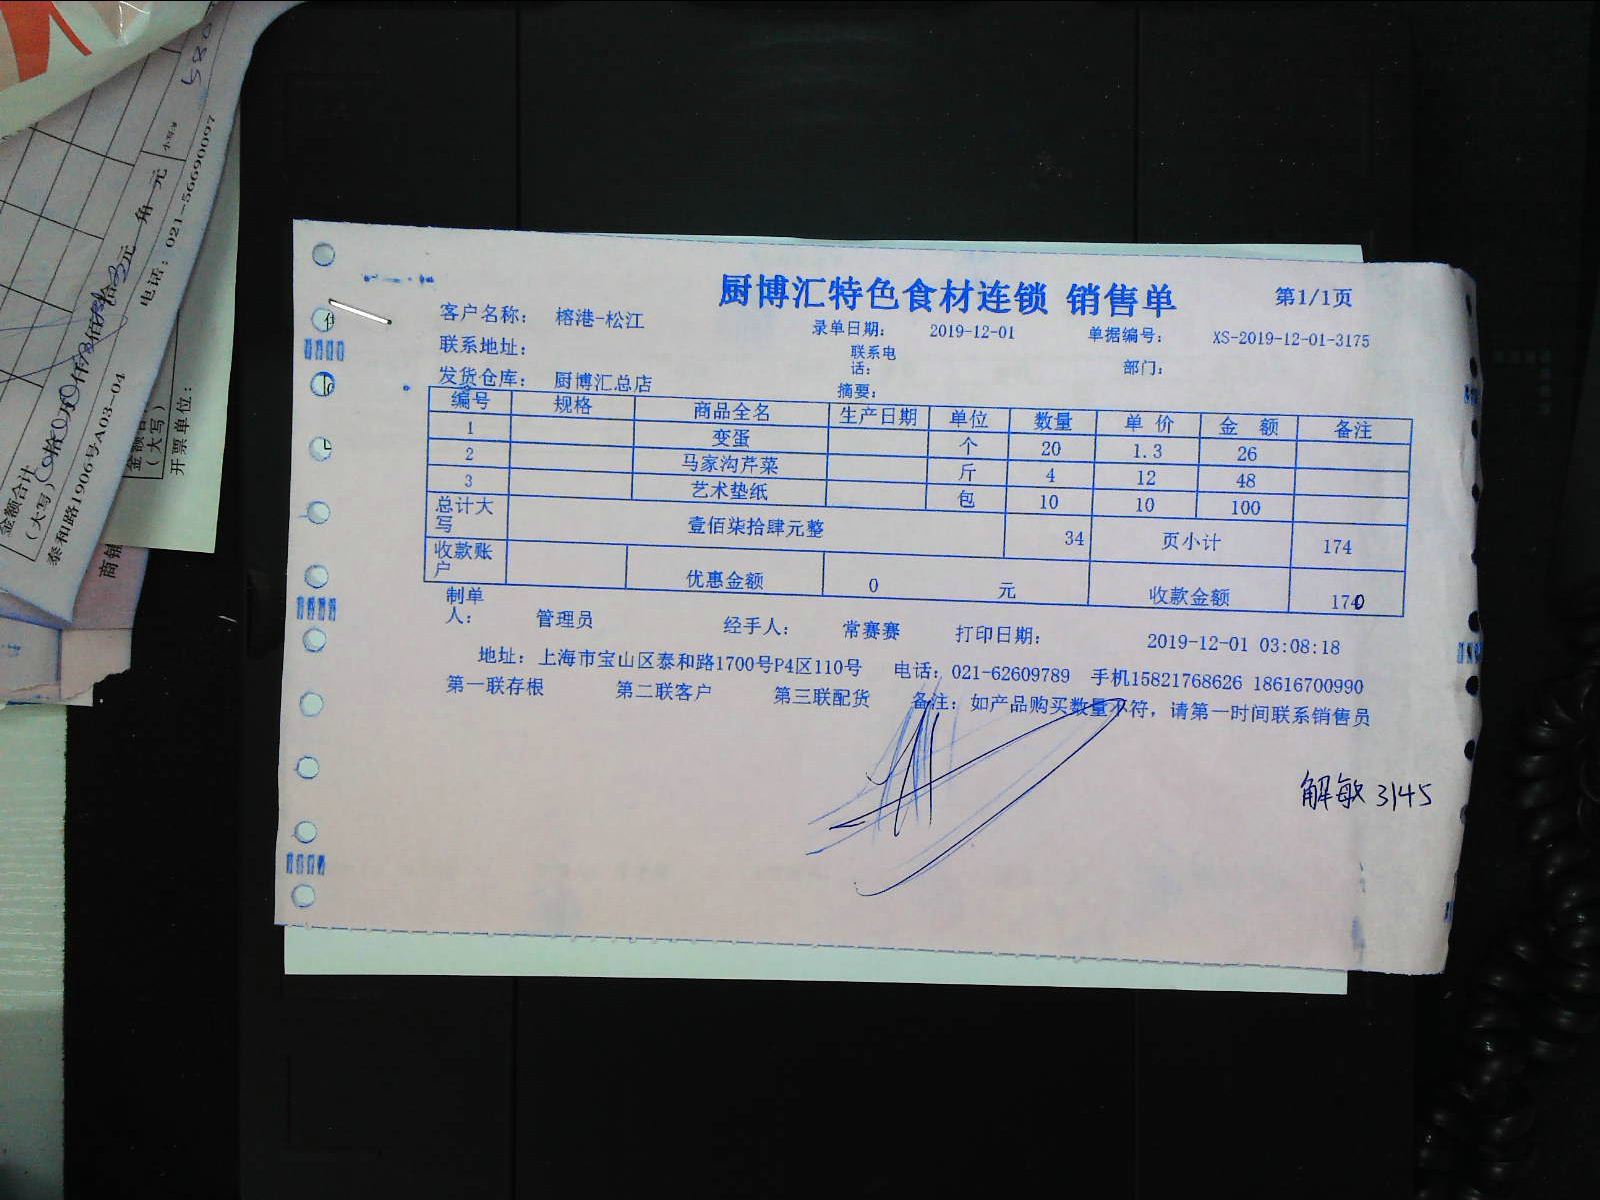 厨博汇特色食材连锁 销售单 第1/1页
客户名称： 榕港-松江 录单日期： 2019-12-01 单据编号： XS-2019-12-01-3175
联系地址： 联系电话： 部门：
发货仓库： 厨博汇总店 摘要：
编号 规格 商品全名 生产日期 单位 数量 单 价 金 额 备注
1 变蛋 个 20 1.3 26
2 马家沟芹菜 斤 4 12 48
3 艺术垫纸 包 10 10 100
总计大写 壹佰柒拾肆元整 34 页小计 174
收款账户 优惠金额 0 元 收款金额 170
制单人： 管理员 经手人： 常赛赛 打印日期： 2019-12-01 03:08:18
地址：上海市宝山区泰和路1700号P4区110号 电话：021-62609789 手机15821768626 18616700990
第一联存根 第二联客户 第三联配货 备注：如产品购买数量不符，请第一时间联系销售员
解敏 3145
580
电话：021-56690097
金额合计
（大写）
泰和路1906号A03-04
（大写）
开票单位：
商铺